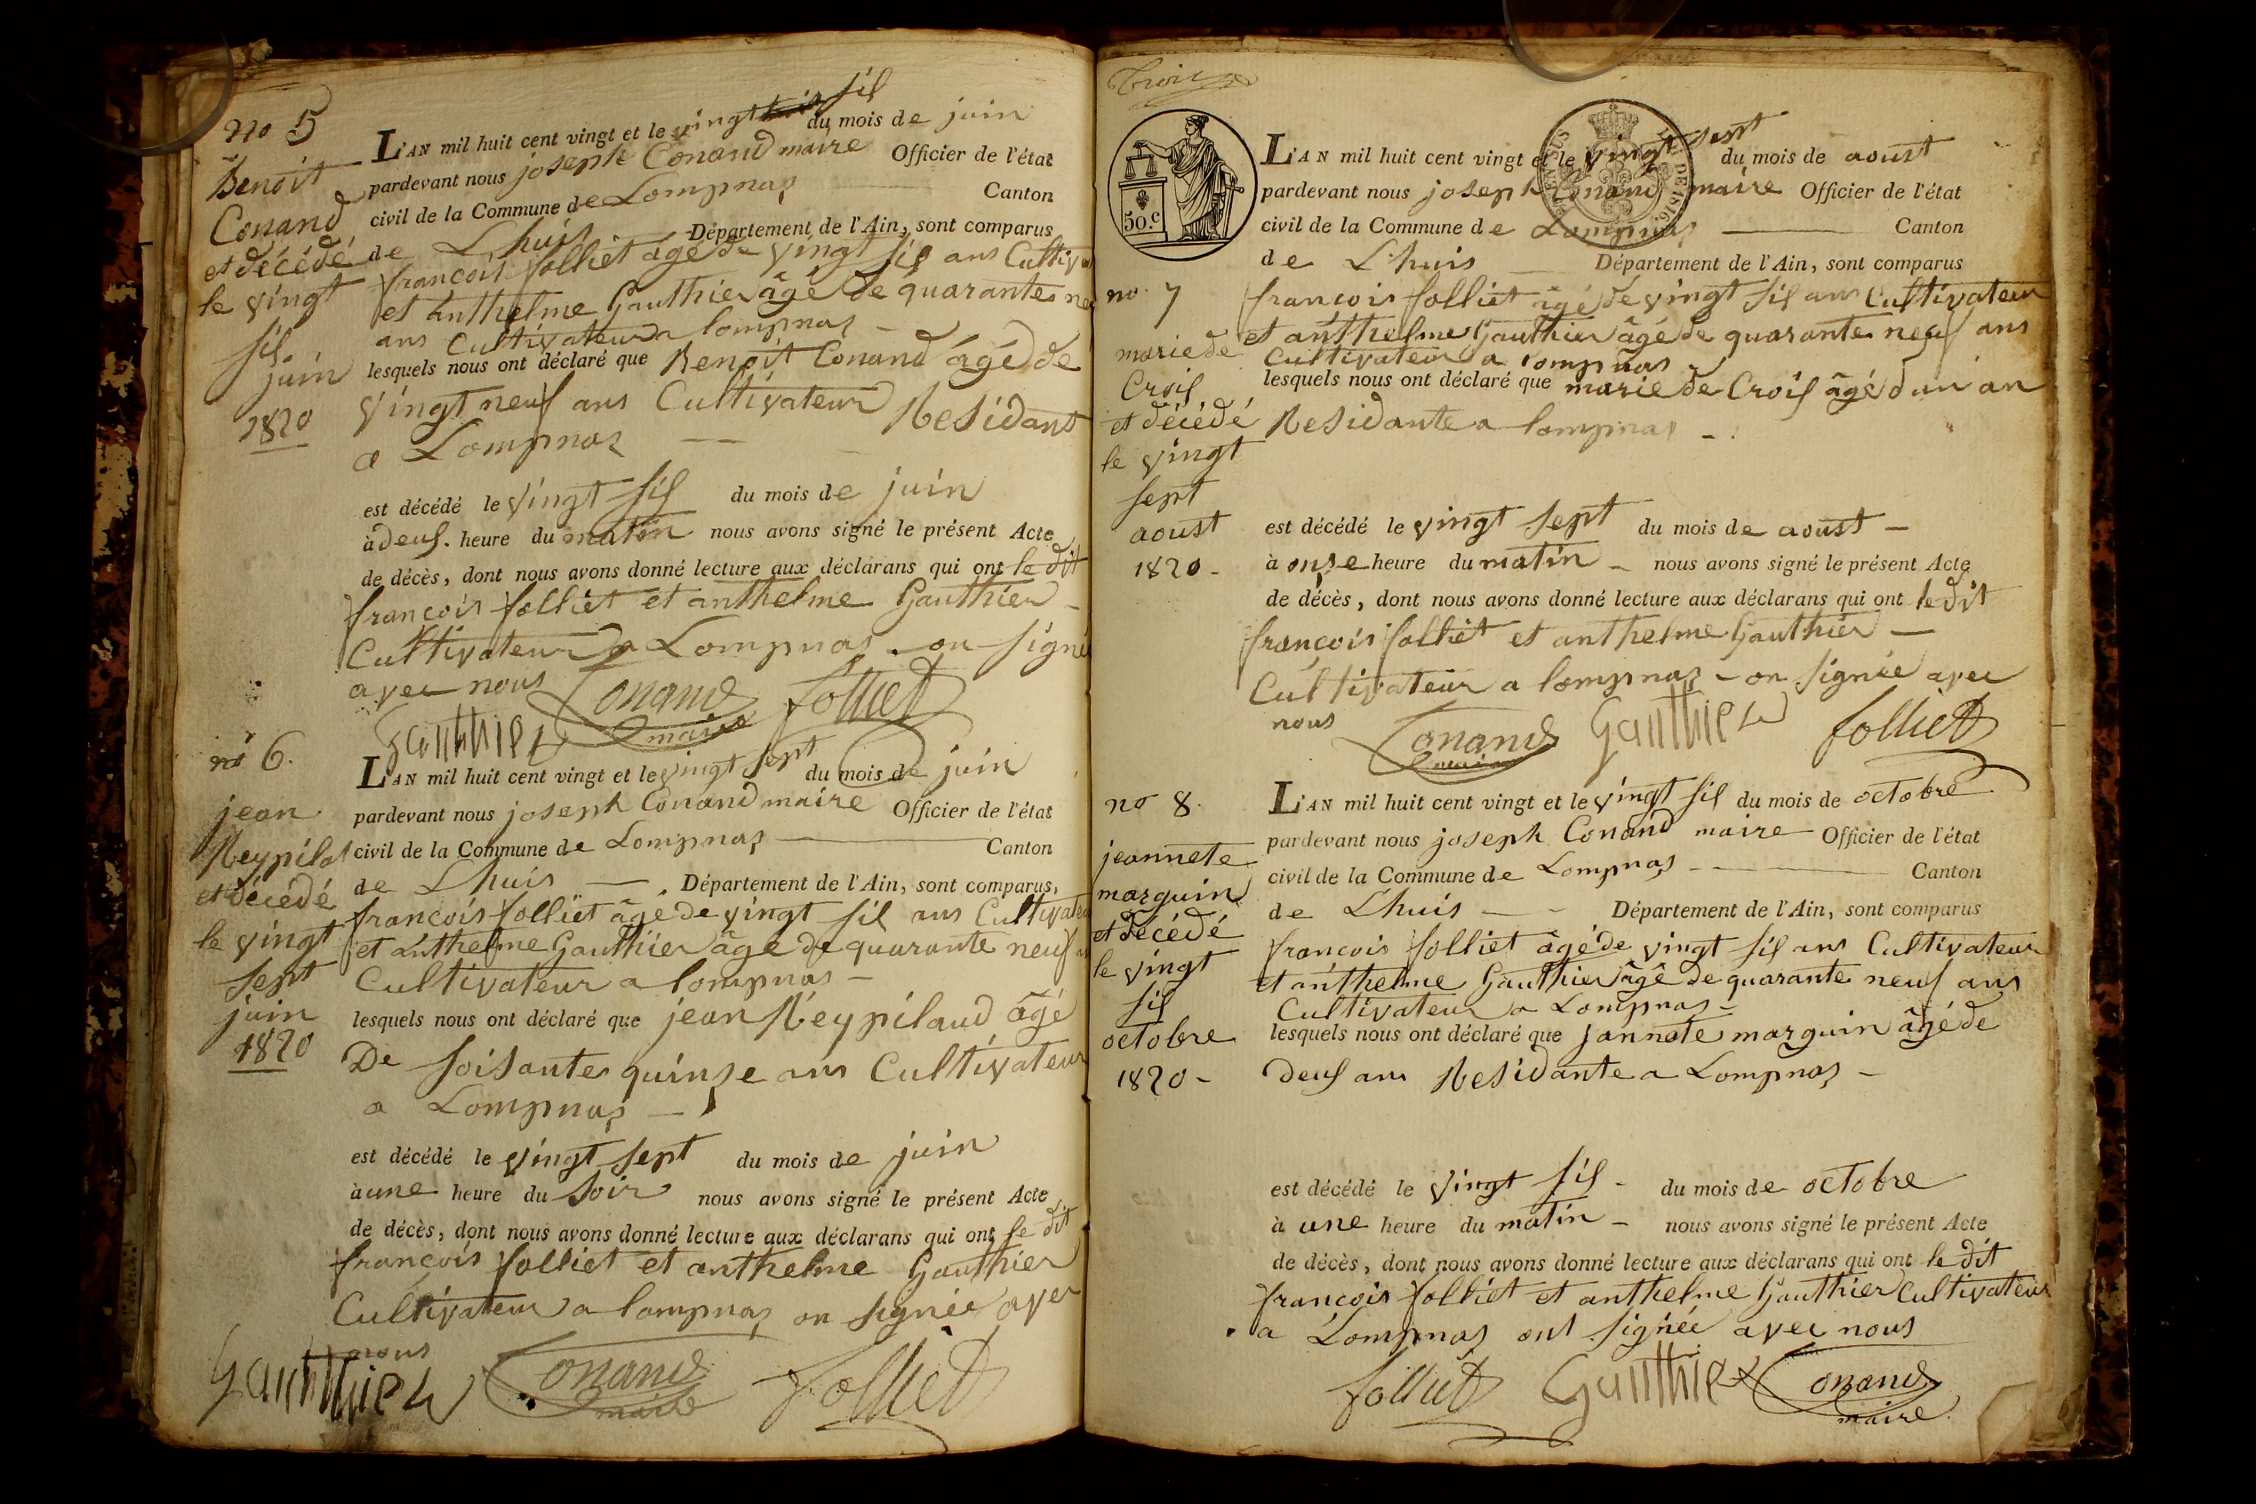 no 5
Benoit
Conand
et décédé
le vingt
sil
juin
1820
L'AN mil huit cent vingt et le vingt sil du mois de juin
pardevant nous joseph Conand maire Officier de l'état
civil de la Commune de Lompnas Canton
de Lhuis Département de l'Ain, sont comparus
francois folliet âgé de vingt sil ans Cultiv
et anthelme Gauthier âgé de quarante ne
ans Cultivateur a lompnas
lesquels nous ont déclaré que Benoit Conand âgé de
vingt neuf ans Cultivateur Residant
a Lompnas
est décédé le vingt sil du mois de juin
à deus heure du matin nous avons signé le présent Acte
de décès, dont nous avons donné lecture aux déclarans qui ont le dit
francois folliet et anthelme Gauthier
Cultivateur a Lompnas on signé
avec nous
Conand folliet
maire
Gauthier
no 6.
jean
Reypilat
et décédé
le vingt
sept
juin
1820
L'AN mil huit cent vingt et le vingt sept du mois de juin
pardevant nous joseph Conand maire Officier de l'état
civil de la Commune de Lompnas Canton
de Lhuis Département de l'Ain, sont comparus,
francois folliet âgé de vingt sil ans Cultivateu
et anthelme Gauthier âgé de quarante neuf
Cultivateur a lompnas
lesquels nous ont déclaré que jean Reypilaud âgé
De soisante quinse ans Cultivateur
a Lompnas
est décédé le vingt sept du mois de juin
à une heure du soir nous avons signé le présent Acte
de décès, dont nous avons donné lecture aux déclarans qui ont le dit
francois folliet et anthelme Gauthier
Cultivateur a lompnas on signée avec
nous
Gauthier Conand folliet
maire
Trois
50.c
DE 1816.
no 7
marie de
Crois
et décédé
le vingt
sept
aoust
1820
L'AN mil huit cent vingt et le vingt sept du mois de aoust
pardevant nous joseph Conand maire Officier de l'état
civil de la Commune de Lompnas Canton
de Lhuis Département de l'Ain, sont comparus
françois folliet âgé de vingt sil ans Cultivateur
et anthelme Gauthier âgé de quarante neuf ans
Cultivateur a lompnas
lesquels nous ont déclaré que marie de Crois âgé d'un an
Residante a lompnas
est décédé le vingt sept du mois de aoust
à onse heure du matin nous avons signé le présent Acte
de décès, dont nous avons donné lecture aux déclarans qui ont le dit
françois folliet et anthelme Gauthier
Cultivateur a lompnas on signée avec
nous
Conand Gauthier folliet
maire
no 8.
jeannete
marguin
et décédé
le vingt
sil
octobre
1820
L'AN mil huit cent vingt et le vingt sil du mois de octobre
pardevant nous joseph Conand maire Officier de l'état
civil de la Commune de Lompnas Canton
de Lhuis Département de l'Ain, sont comparus
francois folliet âgé de vingt sil ans Cultivateur
et anthelme Gauthier âgé de quarante neuf ans
Cultivateur a Lompnas
lesquels nous ont déclaré que jannete marguin âgé de
deus ans Residante a Lompnas
est décédé le vingt sil du mois de octobre
à une heure du matin nous avons signé le présent Acte
de décès, dont nous avons donné lecture aux déclarans qui ont le dit
francois folliet et anthelme Gauthier Cultivateur
a Lompnas ont signée avec nous
folliet Gauthier Conand
maire